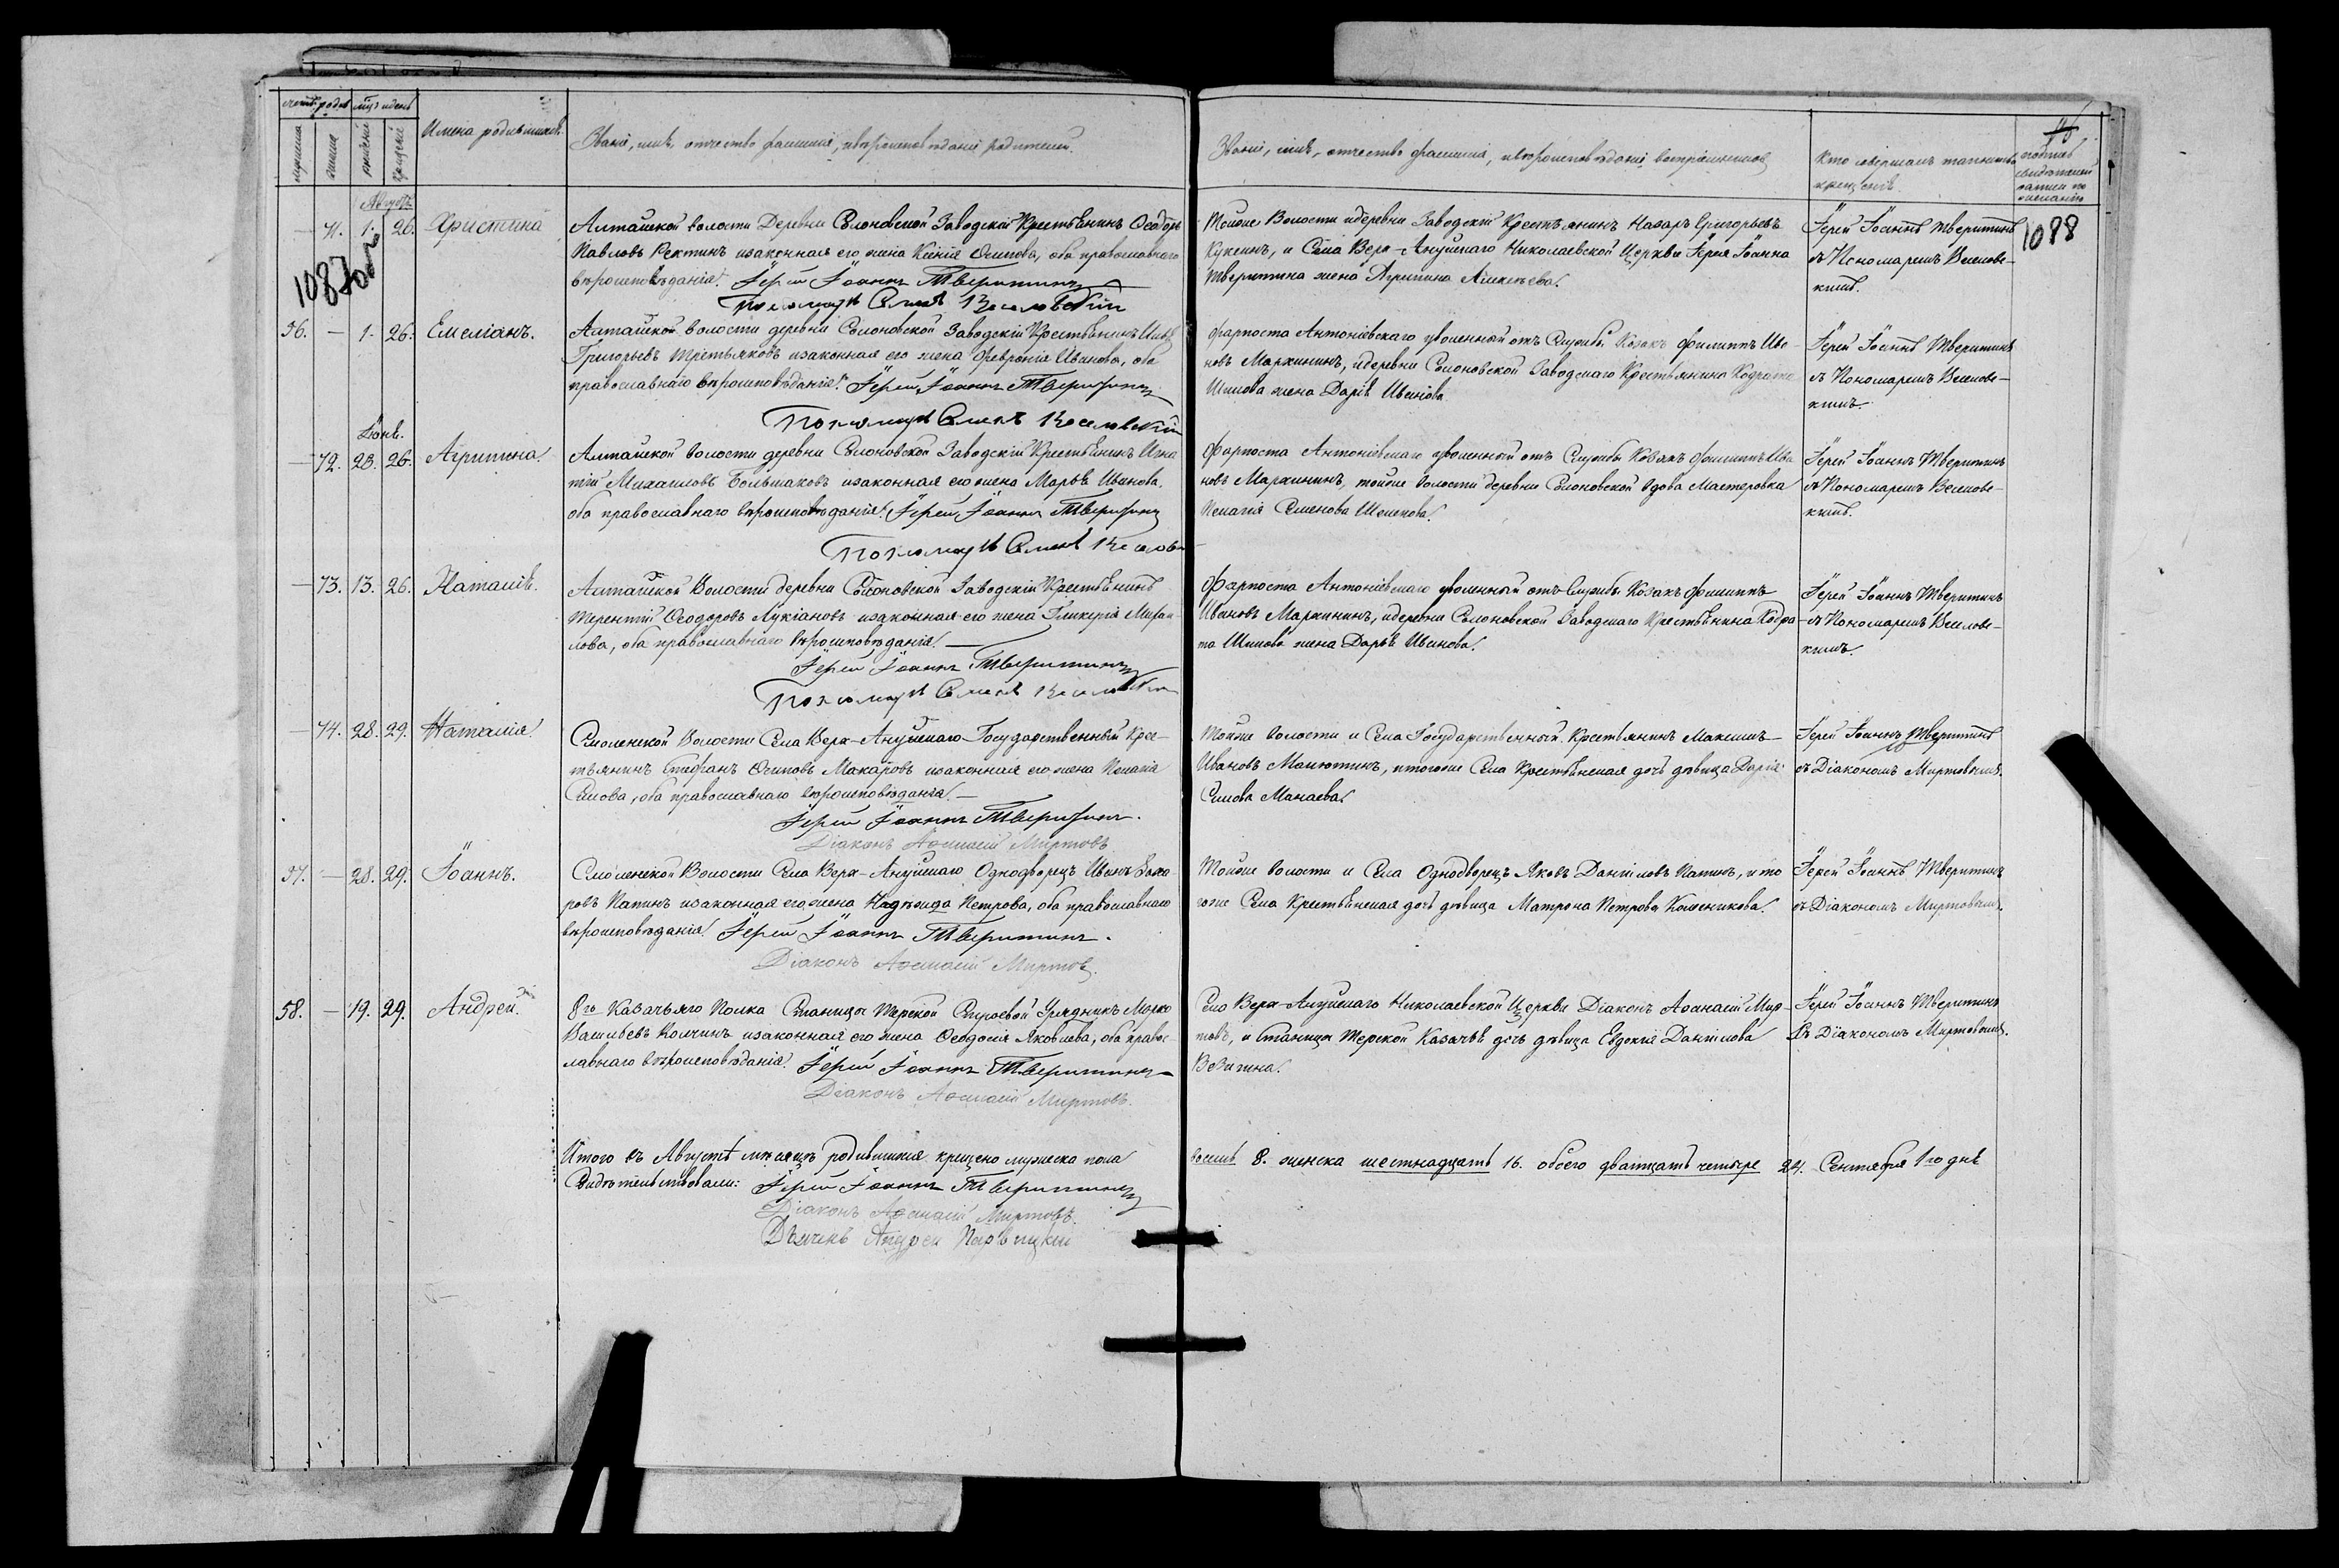 Имена родившихся.
Званіе, имя, отчество, фамилія, и вѣроисповѣданіе родителей.
Званіе, имя, отчество, фамилія, и вѣроисповѣданіе воспріемниковъ
Кто совершалъ таинство
крещенія.
Августъ
71. 1. 26. Христина
Алтайской волости Деревни Солоновской Заводскій Крестьянинъ Ѳеодоръ
Павловъ Ректинъ изаконная его жена Ксенія Осипова, оба православнаго
вѣроисповѣданія. Іерей Іоаннъ Тверитинъ
Пономарь Семенъ Веселовскій
Тойже Волости идеревни Заводскій Крестьянинъ Назаръ Григорьевъ
Куксинъ, и Села Верх-Ануйскаго Николаевской Церкви Іерея Іоанна
Тверитина жена Агрипина Алексѣева.
Іерей Іоаннъ Тверитинъ
съ Пономаремъ Веселовс-
кимъ.
1088
1087об
56. — 1. 26. Емеліанъ.
Алтайской волости деревни Солоновской Заводскій Крестьянинъ
Григорьевъ Третьяковъ изаконная его жена Февронія Иванова, оба
православнаго вѣроисповѣданія. Іерей Іоаннъ Тверитинъ
Пономарь Семенъ Веселовскій
Фарпоста Антоніевскаго уволенной отъ Службы Козакъ Филиппъ Ива-
новъ Маркининъ, идеревни Солоновской Заводскаго Крестьянина Кодрата
Шипова жена Дарья Иванова.
Іерей Іоаннъ Тверитинъ
съ Пономаремъ Веселовс-
кимъ.
— 72. 23. 26. Агрипина.
Алтайской волости деревни Солоновской Заводскій Крестьянинъ Игна
тій Михаиловъ Большаковъ изаконная его жена Марѳа Иванова.
оба православнаго вѣроисповѣданія. Іерей Іоаннъ Тверитинъ
Пономарь Семенъ
Фарпоста Антоніевскаго уволенной отъ Службы Козакъ Филиппъ Ива
новъ Маркининъ, тойже волости деревни Солоновской вдова Мастеровка
Пелагія Семенова
Іерей Іоаннъ Тверитинъ
съ Пономаремъ Веселовс-
кимъ.
— 73. 13. 26. Наталія.
Алтайской Волости деревни Солоновской Заводскій Крестьянинъ
Терентій Ѳеодоровъ Лукіановъ изаконная его жена Гликерія Михаи-
лова, оба православнаго вѣроисповѣданія. —
Іерей Іоаннъ Тверитинъ
Пономарь Семенъ Веселовскій
Фарпоста Антоніевскаго уволенный отъ Службы Козакъ Филиппъ
Ивановъ Маркининъ, идеревни Солоновской Заводскаго Крестьянина Кодра
та Шипова жена Дарья Иванова.
Іерей Іоаннъ Тверитинъ
съ Пономаремъ Веселовс-
кимъ.
— 74. 28. 29. Наталія.
Смоленской Волости Села Верх-Ануйскаго Государственный Крес-
тьянинъ Стефанъ Осиповъ Макаровъ изаконная его жена Пелагія
Силова, оба православнаго вѣроисповѣданія. —
Іерей Іоаннъ Тверитинъ.
Діаконъ Аѳанасій Миртовъ
Тойже волости и Села Государственный Крестьянинъ Максимъ
Ивановъ Малютинъ, итогоже Села Крестьянская дочь дѣвица Дарія
Силова Манаева.
Іерей Іоаннъ Тверитинъ
съ Діакономъ Миртовымъ.
57. — 28. 29. Іоаннъ.
Смоленской Волости Села Верх-Ануйскаго Однодворецъ Иванъ Заха-
ровъ Папинъ изаконная его жена Надѣжда Петрова, оба православнаго
вѣроисповѣданія. Іерей Іоаннъ Тверитинъ.
Діаконъ Аѳанасій Миртовъ.
Тойже волости и Села Однодворецъ Яковъ Даніиловъ Папинъ, и то
гоже Села Крестьянская дочь дѣвица Матрона Петрова
Іерей Іоаннъ Тверитинъ
съ Діакономъ Миртовымъ.
58. — 19. 29. Андрей.
8го Казачьяго Полка Станицы Терской Строевой Урядникъ Марко
Васильевъ Колчинъ изаконная его жена Ѳеодосія Яковлева, оба правос-
лавнаго вѣроисповѣданія. Іерей Іоаннъ Тверитинъ
Діаконъ Аѳанасій Миртовъ.
Села Верх-Ануйскаго Николаевской Церкви Діаконъ Аѳанасій Мир-
товъ, и Станицы Терской Казачья дочь дѣвица Евдокія Даніилова
Іерей Іоаннъ Тверитинъ
съ Діакономъ Миртовымъ.
Итого въ Августѣ мѣсяцѣ родившихся крещено мужеска пола
восемь 8. женска шестнадцать 16. обоего дватцать четыре 24. Сентября 1го дня
Свидѣтельствовали: Іерей Іоаннъ Тверитинъ
Діаконъ Аѳанасій Миртовъ.
Дьячекъ Андрей